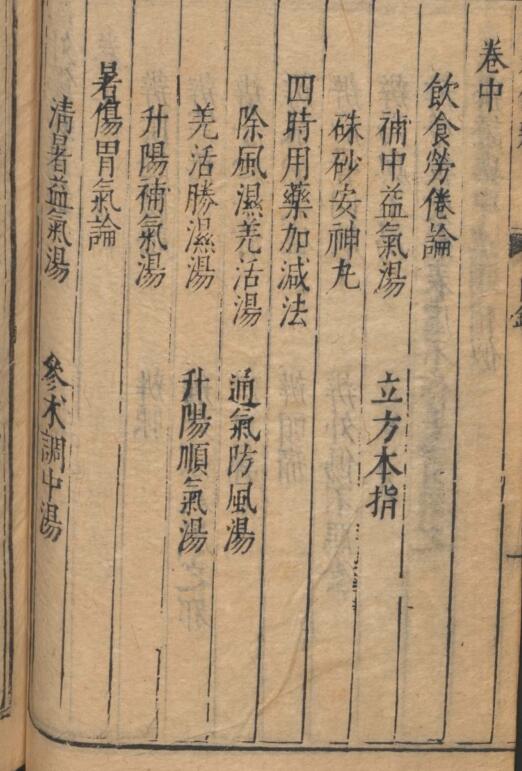 卷中
飲食勞倦論
補中益氣湯　立方本指
硃砂安神丸
四時用藥加減法
除風濕羌活湯　通氣防風湯
羌活勝濕湯　升陽順氣湯
升陽補氣湯
暑傷胃氣論
清暑益氣湯　參朮調中湯